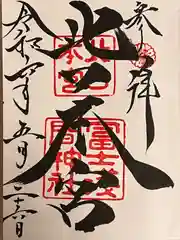 奉拝
北口
本宮
冨士浅
間神社
北口本宮
令和四年五月二十六日